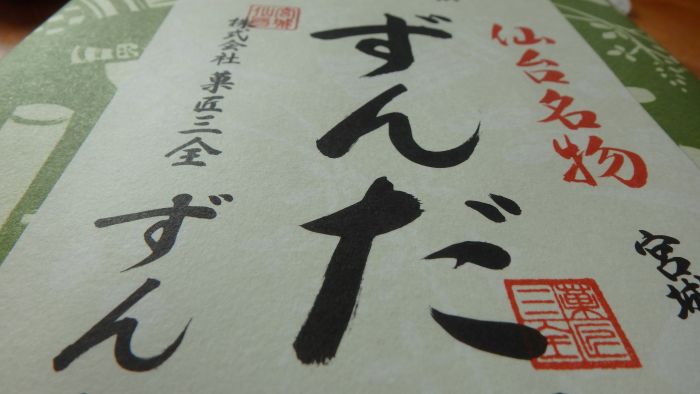 仙台名物
ずんだ
宮城
仙台
株式会社 菓匠三全
ずん
宮城
菓匠
三全